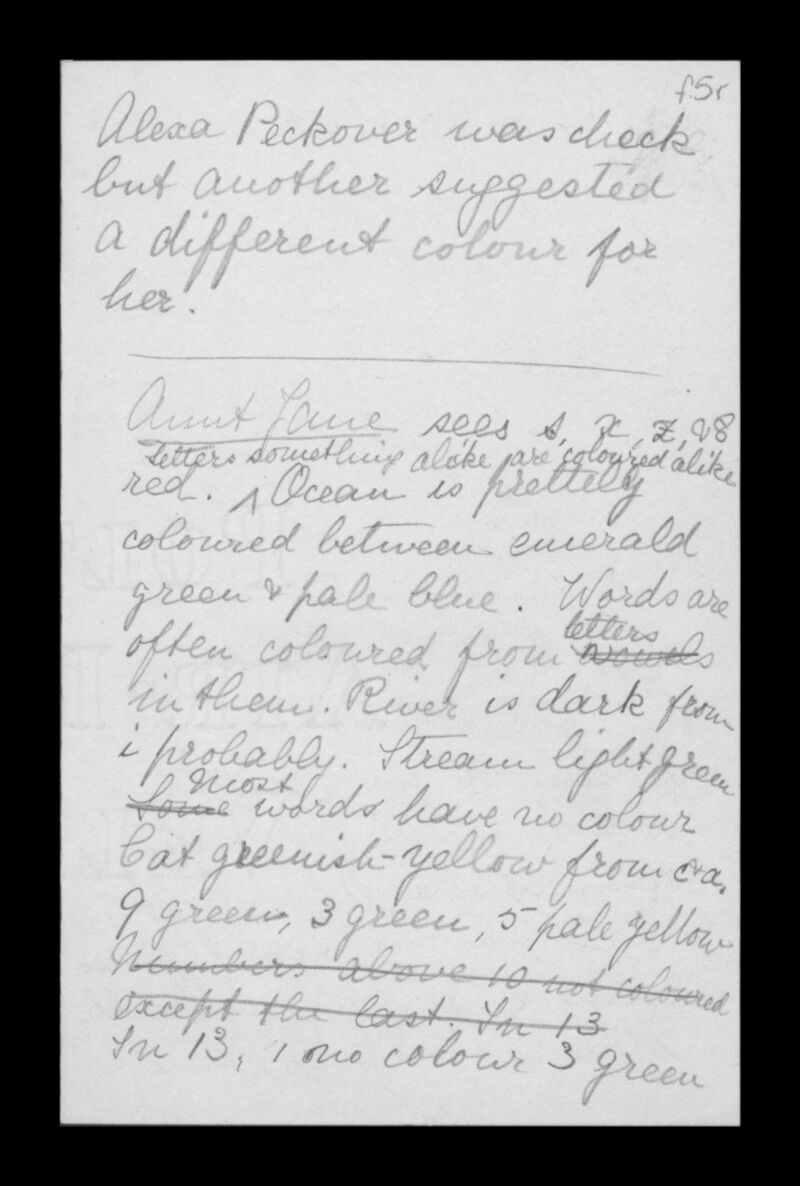 f5r
Alexa Peckover was check
but another suggested
a different colour for
her.
Aunt Jane sees s, x, z, & 8
letters something alike are coloured alike
red. ^ Ocean is prettily
coloured between emerald
green & pale blue. Words are
letters
often coloured from vowels
in them. River is dark from
i probably. Stream light green
Most
Some words have no colour
Cat greenish-yellow from c & a.
9 green, 3 green, 5 pale yellow
Numbers above 10 not coloured
except the last. In 13
In 13, 1 no colour 3 green